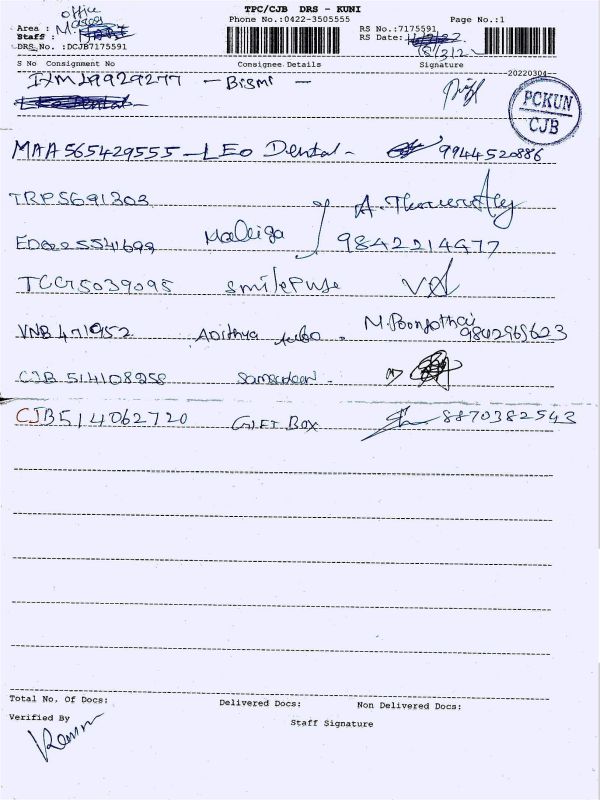 TPC/CJB DRS - KUNI
Phone No.:0422-3505555 Page No.:1
office
Area :
Staff :
DRS No. :DCJB7175591
RS No.:7175591
RS Date:
S No Consignment No Consignee Details Signature
20220304
IXM29929277 - Bismi -
PCKUN
CJB
MAA565429555 - LEO Dental - 9944520886
TRP5691303
Maleiga 9842214477
TCC75039095 smilepure
VNB471952 Adithya M. Poonjothai 9842969623
CJB514108958
CJB514062720 GIFT BOX 8870382543
Total No. Of Docs: Delivered Docs: Non Delivered Docs:
Verified By Staff Signature